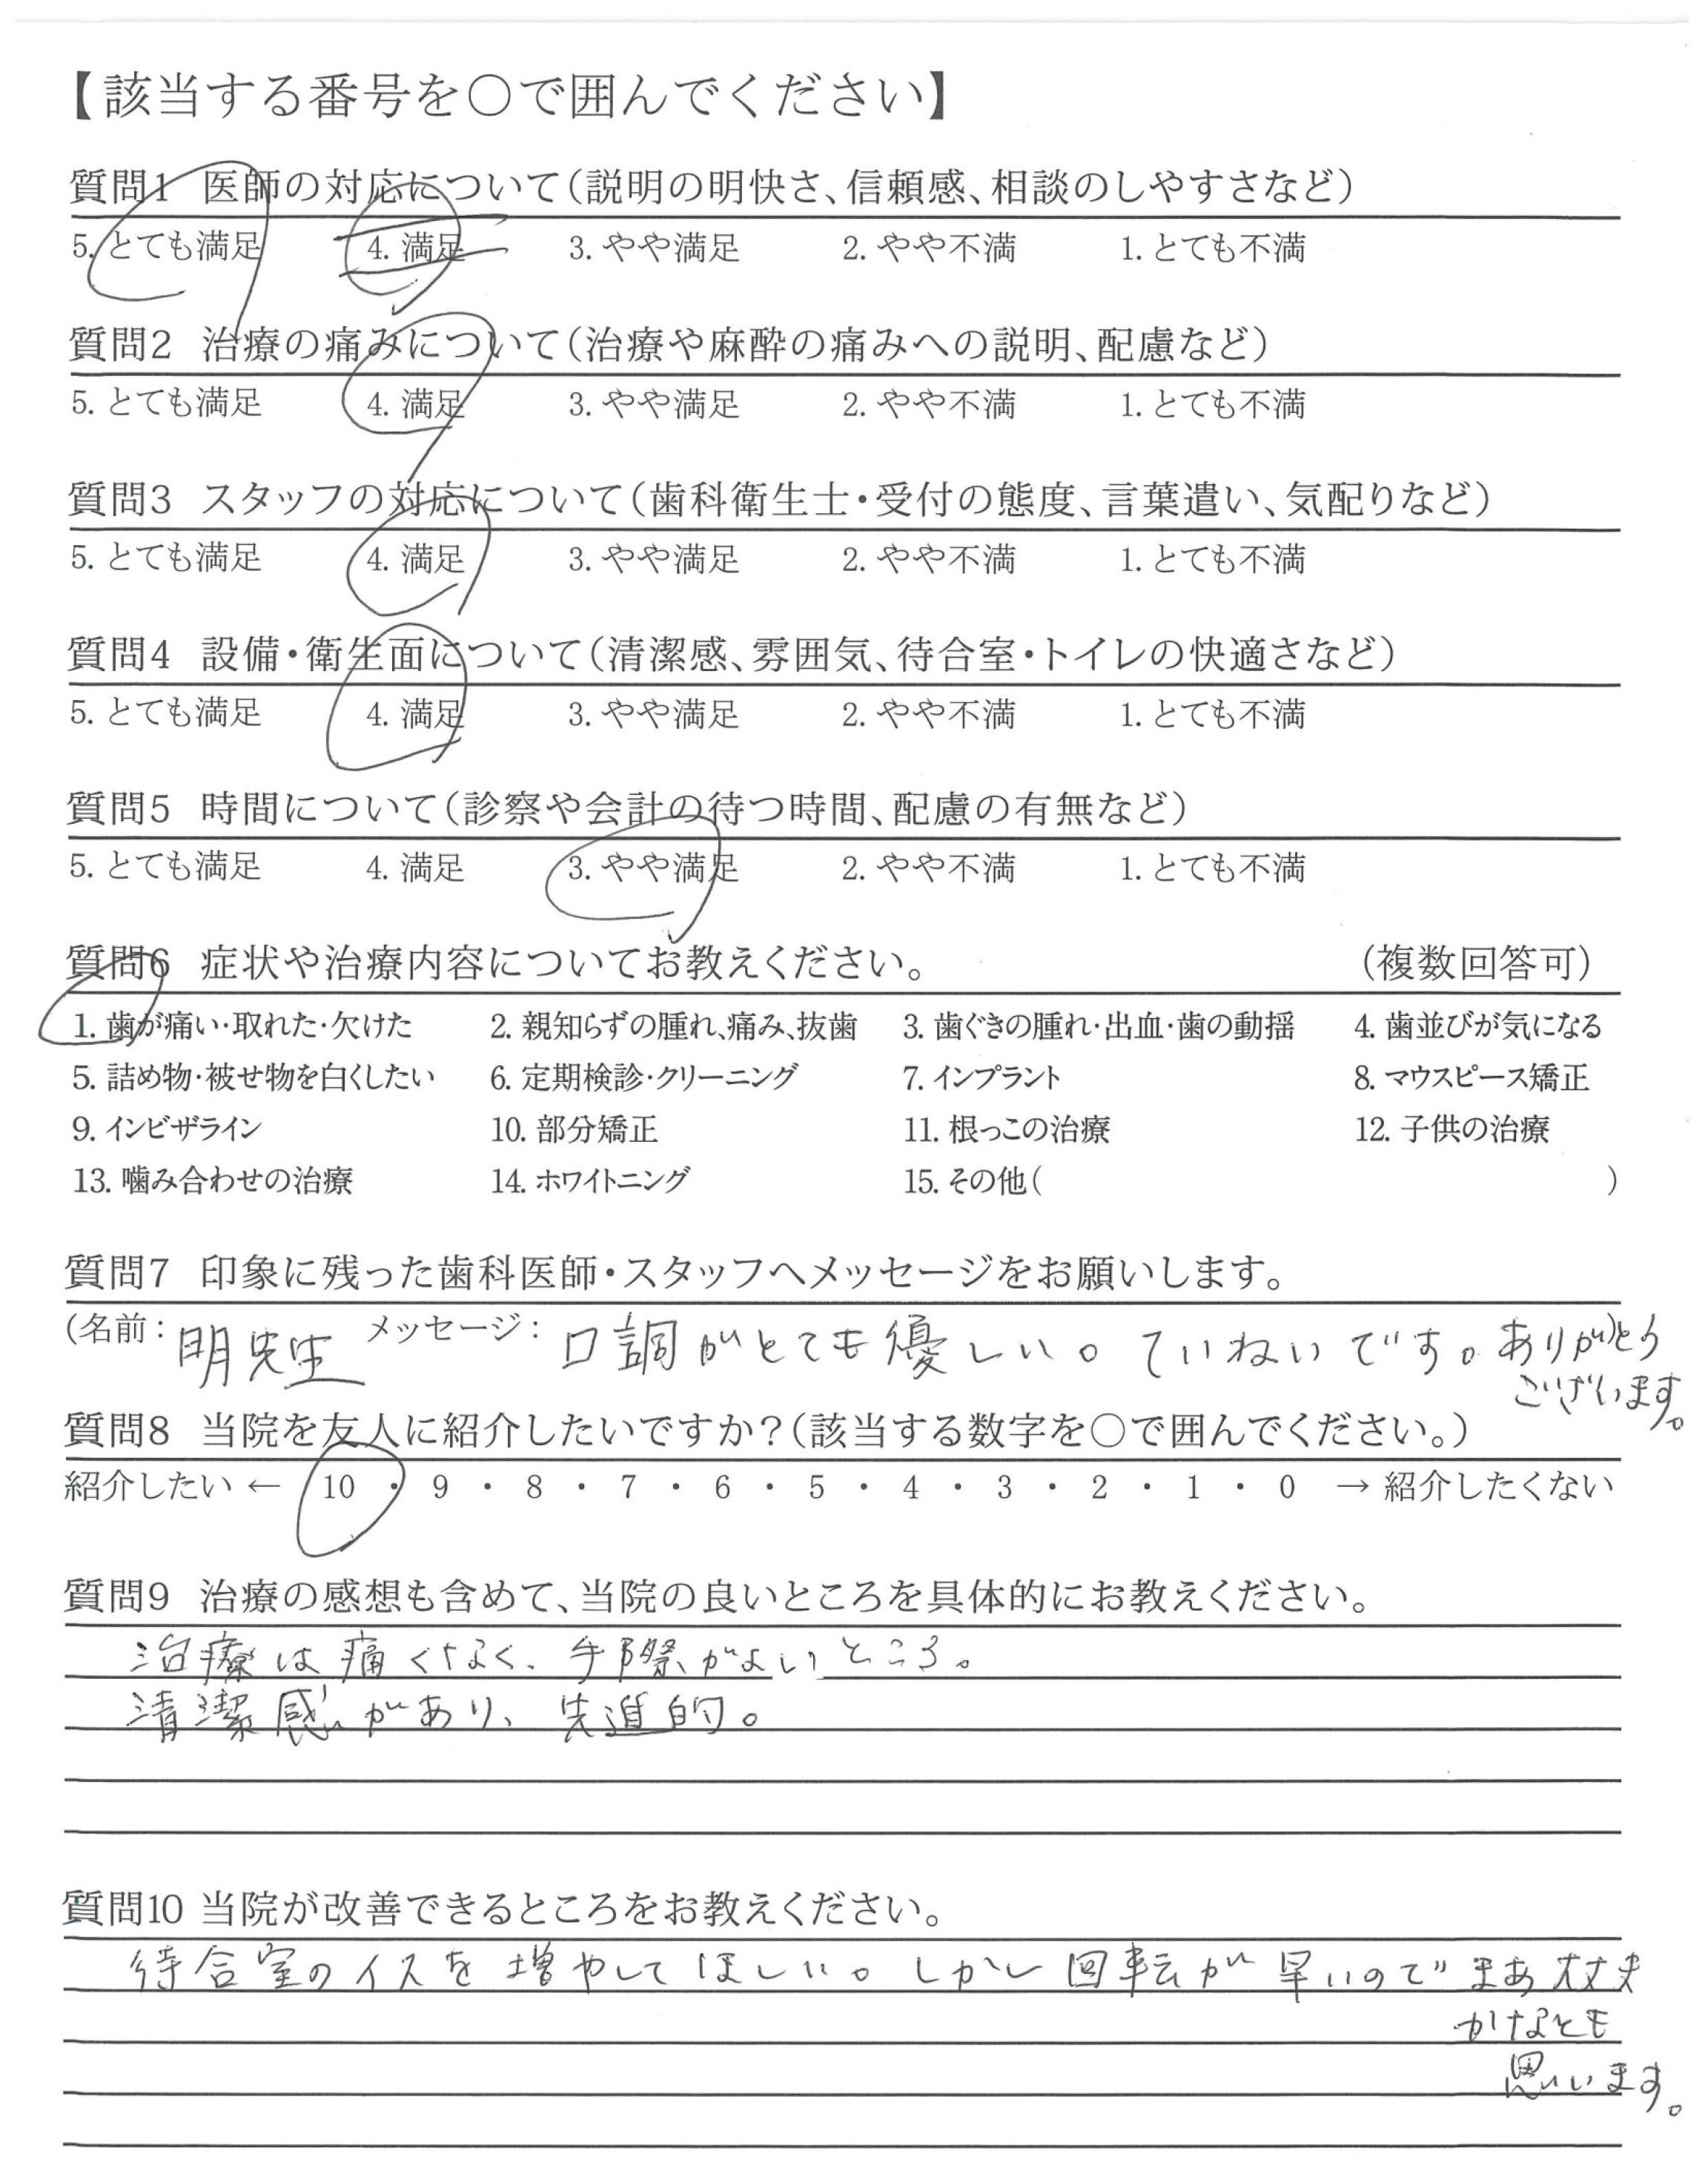 【該当する番号を〇で囲んでください】
質問1 医師の対応について(説明の明快さ、信頼感、相談のしやすさなど)
5. とても満足 4. 満足 3. やや満足 2. やや不満 1. とても不満
質問2 治療の痛みについて(治療や麻酔の痛みへの説明、配慮など)
5. とても満足 4. 満足 3. やや満足 2. やや不満 1. とても不満
質問3 スタッフの対応について(歯科衛生士・受付の態度、言葉遣い、気配りなど)
5. とても満足 4. 満足 3. やや満足 2. やや不満 1. とても不満
質問4 設備・衛生面について(清潔感、雰囲気、待合室・トイレの快適さなど)
5. とても満足 4. 満足 3. やや満足 2. やや不満 1. とても不満
質問5 時間について(診察や会計の待つ時間、配慮の有無など)
5. とても満足 4. 満足 3. やや満足 2. やや不満 1. とても不満
質問6 症状や治療内容についてお教えください。 (複数回答可)
1. 歯が痛い・取れた・欠けた 2. 親知らずの腫れ、痛み、抜歯 3. 歯ぐきの腫れ・出血・歯の動揺 4. 歯並びが気になる
5. 詰め物・被せ物を白くしたい 6. 定期検診・クリーニング 7. インプラント 8. マウスピース矯正
9. インビザライン 10. 部分矯正 11. 根っこの治療 12. 子供の治療
13. 噛み合わせの治療 14. ホワイトニング 15. その他( )
質問7 印象に残った歯科医師・スタッフへメッセージをお願いします。
(名前: 明先生 メッセージ: 口調がとても優しい。ていねいです。ありがとう)
ございます。
質問8 当院を友人に紹介したいですか?(該当する数字を〇で囲んでください。)
紹介したい ← 10 ・ 9 ・ 8 ・ 7 ・ 6 ・ 5 ・ 4 ・ 3 ・ 2 ・ 1 ・ 0 → 紹介したくない
質問9 治療の感想も含めて、当院の良いところを具体的にお教えください。
治療は痛くなく、手際がよいところ。
清潔感があり、先進的。
質問10 当院が改善できるところをお教えください。
待合室のイスを増やしてほしい。しかし回転が早いのでまあ大丈夫
かなとも
思います。